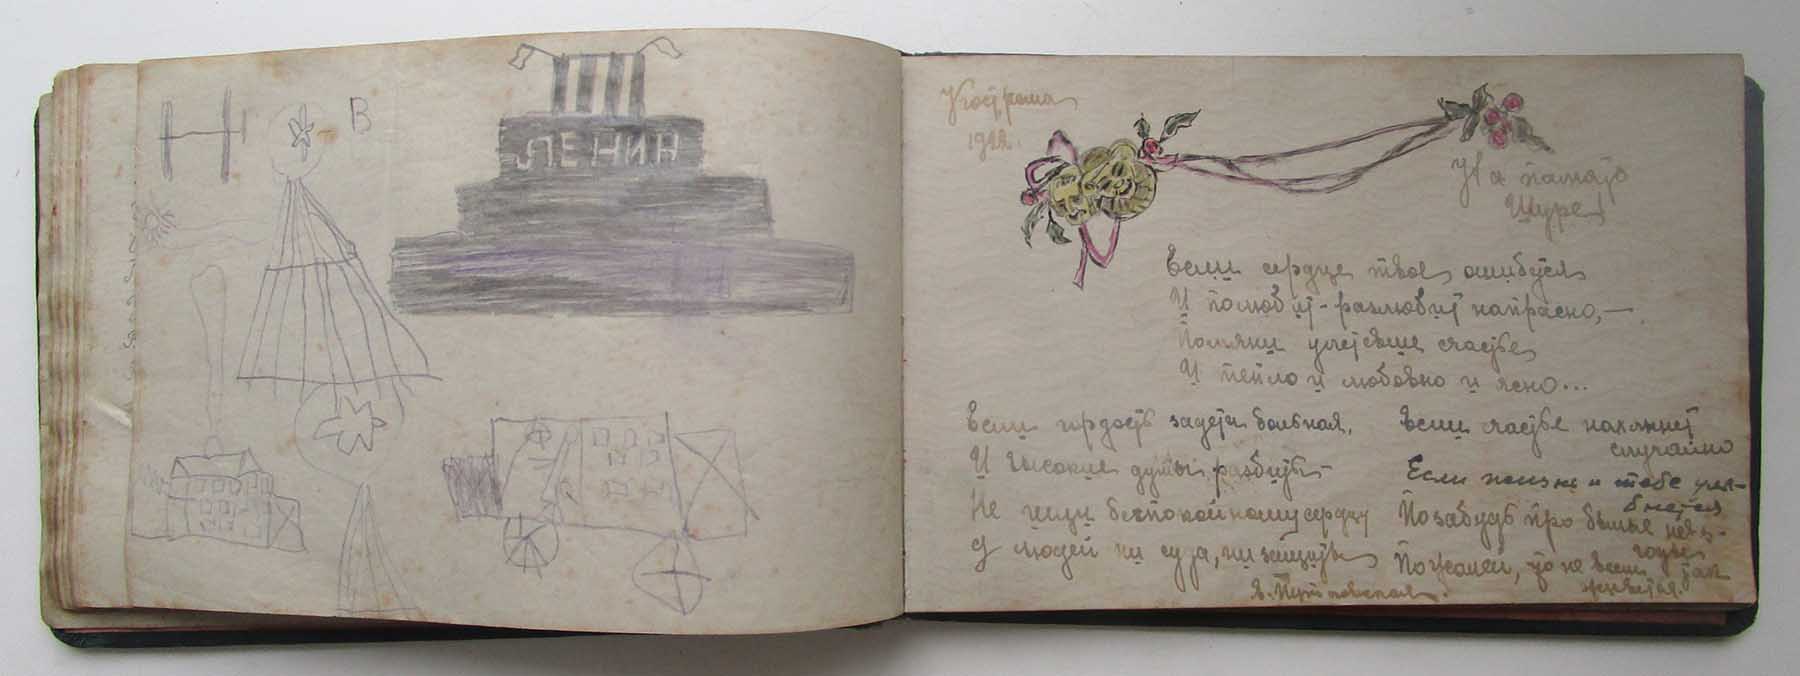 Н
В
ЛЕНИН
Кострома
1922.
На память
Шуре!
Если сердце твое ошибется
И полюбит - разлюбит напрасно, —
Помяни улетевшее счастье
И тепло и любовно и ясно...
Если гордость задета больная,
И высокие думы разбиты -
Не ищи беспокойному сердцу
У людей ни суда, ни защиты
Если счастье нахлынет
случайно
Если жизнь и тебе улы-
бнется
Позабудь про былые невз-
годы
Пожалей, что не всем так
живется.